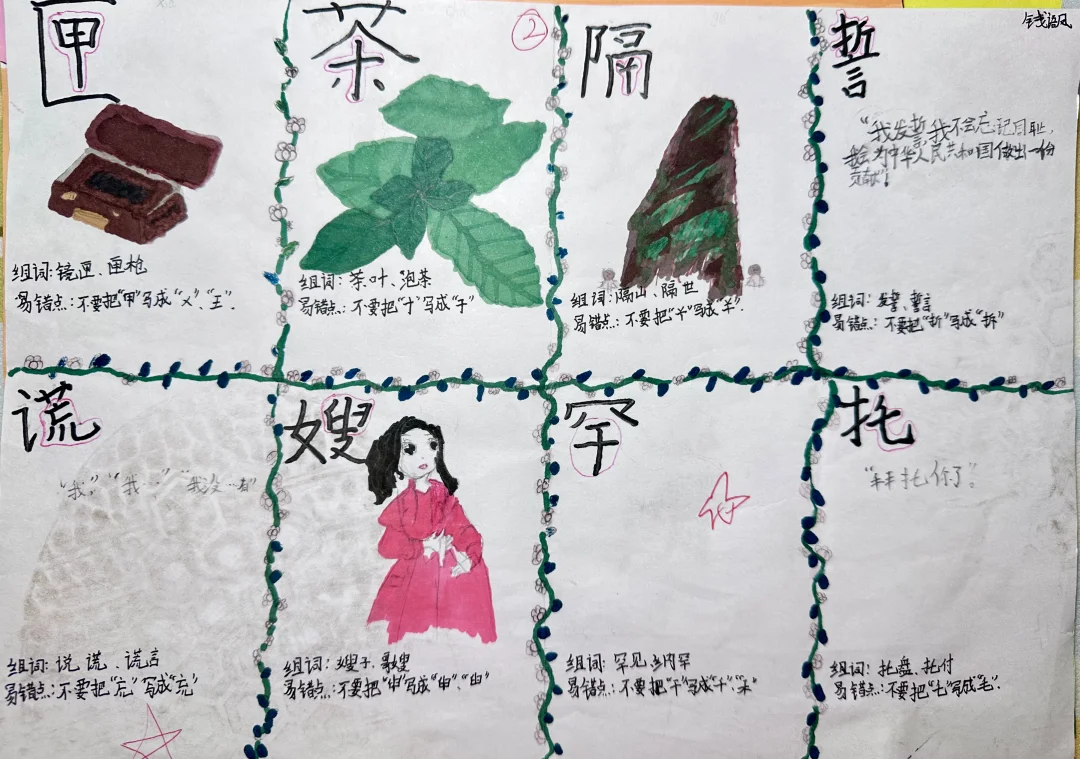 钱语风
②
匣
组词:镜匣、匣枪
易错点:不要把“甲”写成“乂”、“王”.
茶
组词:茶叶、泡茶
易错点:不要把“朩”写成“于”
隔
组词:隔山、隔世
易错点:不要把“䒑”写成“羊”.
誓
“我发誓,我不会忘记国耻,
我会为中华人民共和国做出一份
贡献”!
组词:发誓、誓言
易错点:不要把“折”写成“拆”
谎
“我”,“我…”“我没…有”
组词:说谎、谎言
易错点:不要把“㡃”写成“充”
嫂
组词:嫂子、哥嫂
易错点:不要把“申”写成“申”、“由”
罕
组词:罕见、纳罕
易错点:不要把“干”写成“十”、“未”
托
“拜托你了”
组词:托盘、托付
易错点:不要把“乇”写成“毛”.